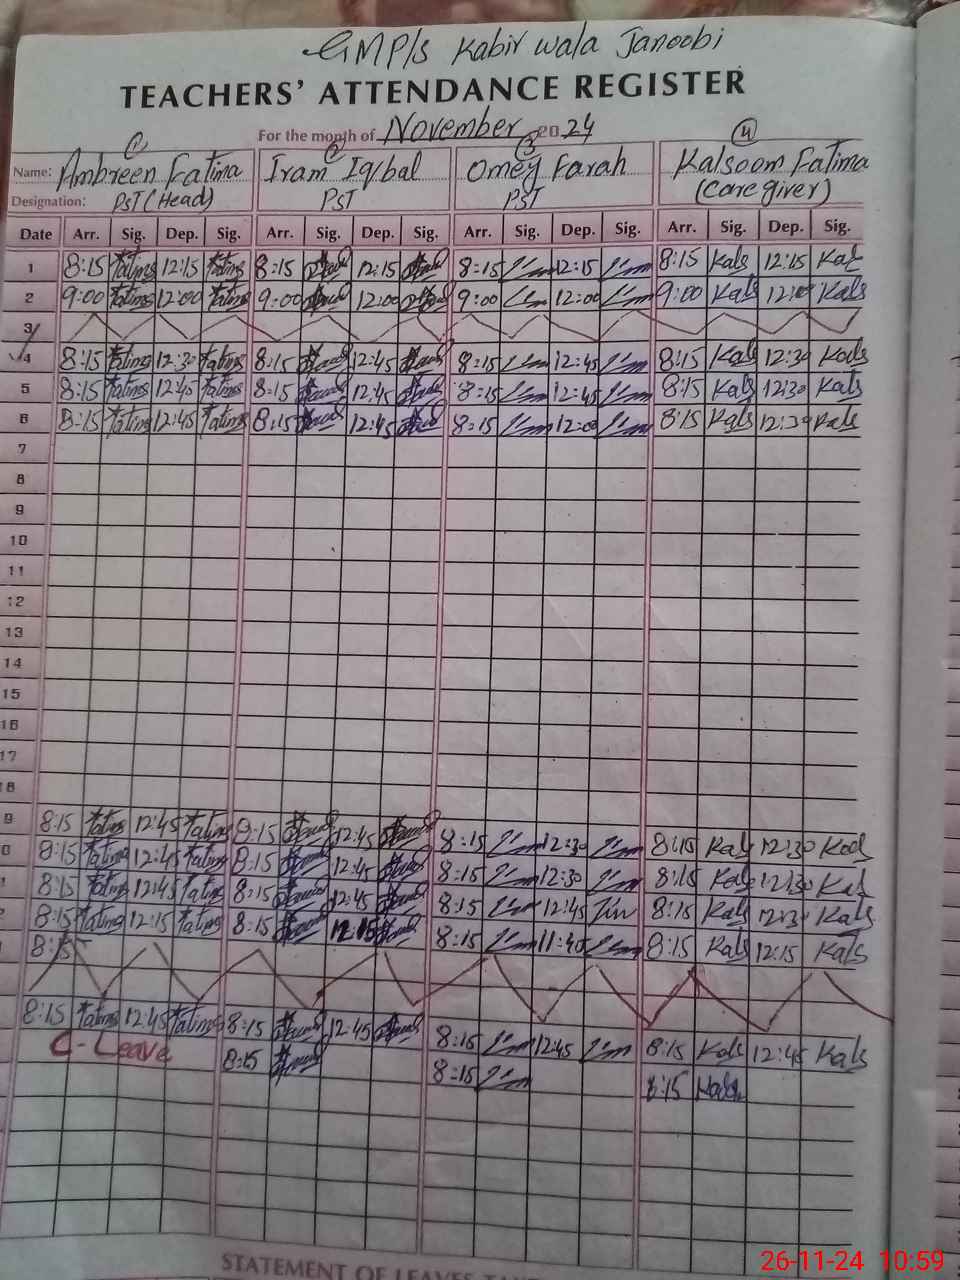 GMP/s Kabir wala Janoobi
TEACHERS' ATTENDANCE REGISTER
For the month of November 2024
1 2 3 4
Name: Ambreen Fatima Iram Iqbal Omey Farah Kalsoom Fatima
Designation: PST (Head) PST PST (Care giver)
Date Arr. Sig. Dep. Sig. Arr. Sig. Dep. Sig. Arr. Sig. Dep. Sig. Arr. Sig. Dep. Sig.
1 8:15 Fatima 12:15 Fatima 8:15 12:15 8:15 12:15 8:15 Kals 12:15 Kals
2 9:00 Fatima 12:00 Fatima 9:00 12:00 9:00 12:00 9:00 Kals 12:00 Kals
3
4 8:15 Fatima 12:30 Fatima 8:15 12:45 8:15 12:45 8:15 Kals 12:30 Kals
5 8:15 Fatima 12:45 Fatima 8:15 12:45 8:15 12:45 8:15 Kals 12:30 Kals
6 8:15 Fatima 12:45 Fatima 8:15 12:45 8:15 12:00 8:15 Kals 12:30 Kals
7
8
9
10
11
12
13
14
15
16
17
18
9 8:15 Fatima 12:45 Fatima 8:15 12:45 8:15 12:30 8:15 Kals 12:30 Kals
0 8:15 Fatima 12:45 Fatima 8:15 12:45 8:15 12:30 8:15 Kals 12:30 Kals
8:15 Fatima 12:45 Fatima 8:15 12:45 8:15 12:45 8:15 Kals 12:30 Kals
8:15 Fatima 12:15 Fatima 8:15 12:15 8:15 11:40 8:15 Kals 12:15 Kals
8:15
8:15 Fatima 12:45 Fatima 8:15 12:45 8:15 12:45 8:15 Kals 12:45 Kals
C-Leave 8:15 8:15 8:15 Kals
STATEMENT OF LEAVES
26-11-24 10:59